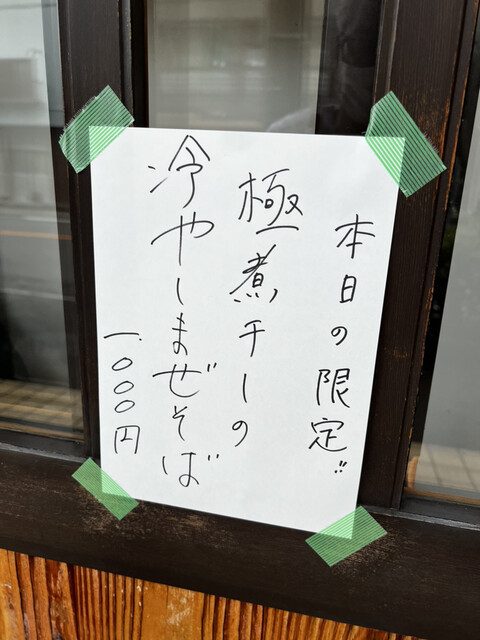 本日の限定!!
極煮干しの
冷やしまぜそば
一.〇〇〇円